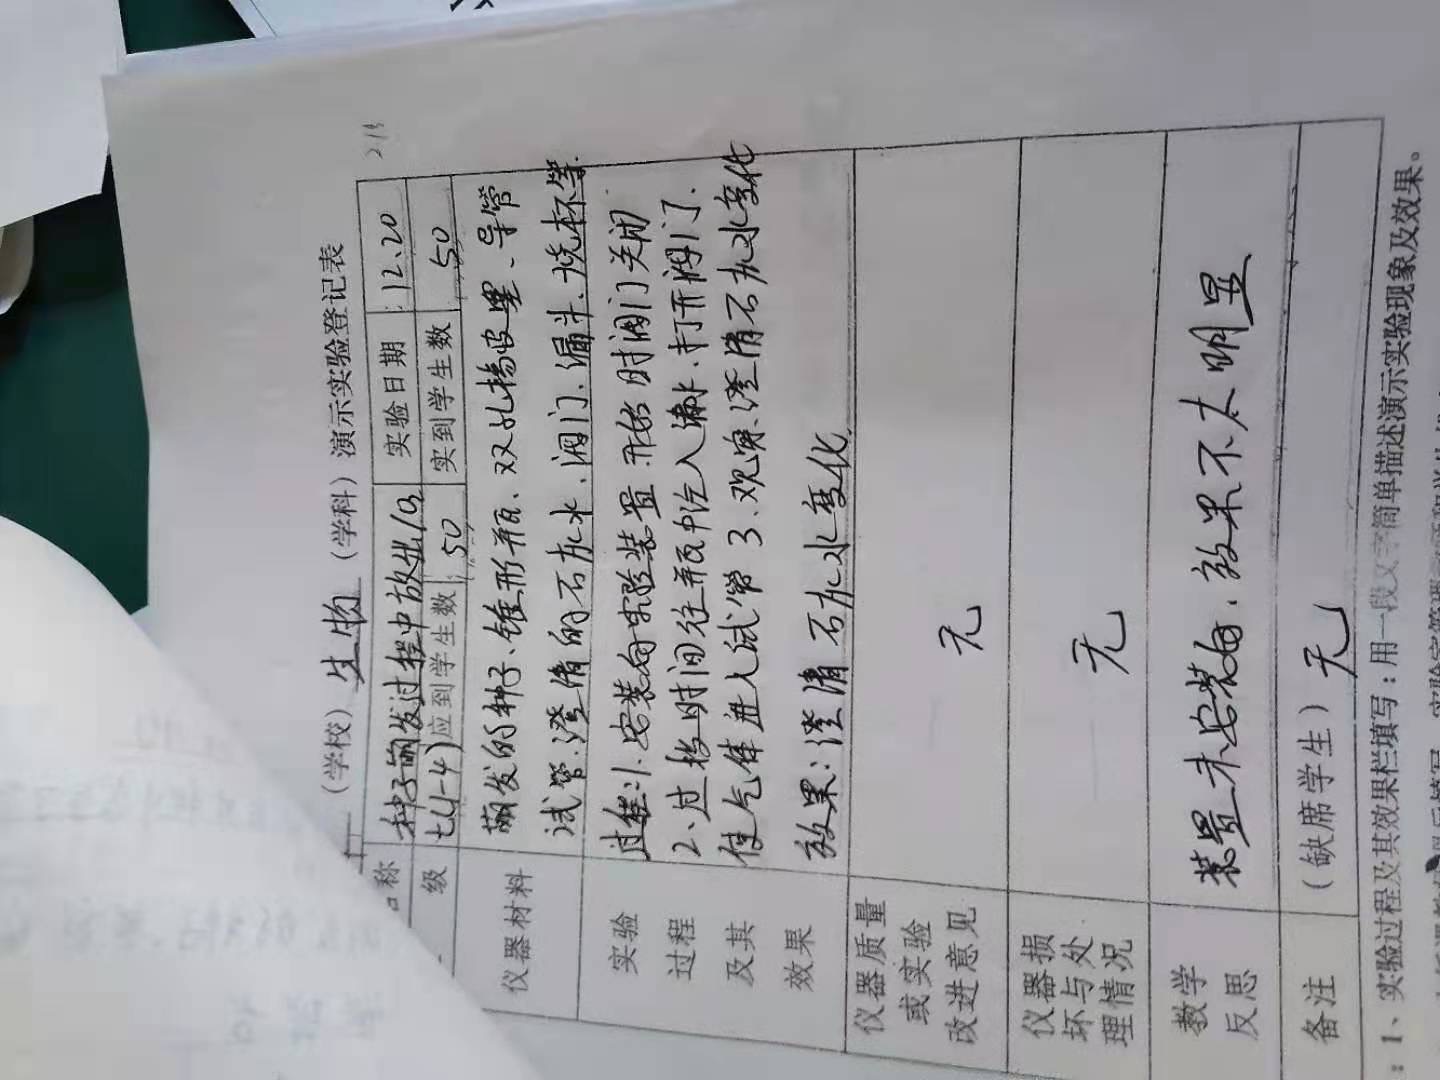 213
（学校）生物（学科）演示实验登记表
称 种子萌发过程中放出 实验日期 12.20
级 七(4) 应到学生数 50 实到学生数 50
仪器材料 萌发的种子、锥形瓶、双孔橡皮塞、导管
试管、澄清的石灰水、阀门、漏斗、烧杯等
实验过程及其效果 过程：1、安装好实验装置，开始时阀门关闭
2、过段时间往瓶中注入清水，打开阀门，
使气体进入试管 3、观察澄清石灰水变化
效果：澄清石灰水变化
仪器质量或实验改进意见 无
仪器损坏与处理情况 无
教学反思 装置未安装好，效果不太明显
备注 （缺席学生）无
：1、实验过程及其效果栏填写：用一段文字简单描述演示实验现象及效果。